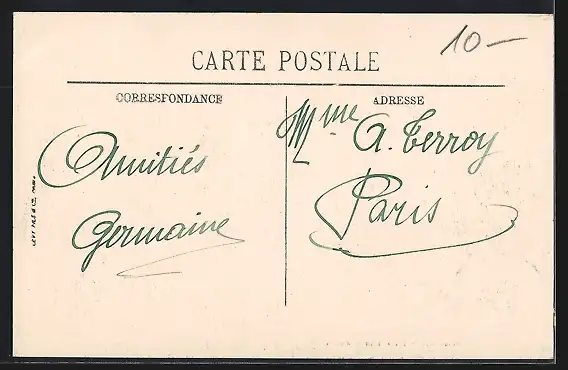 10—
CARTE POSTALE
CORRESPONDANCE
ADRESSE
Amitiés
Germaine
Mme A. Terroy
Paris
LEVY FILS & Cie, PARIS